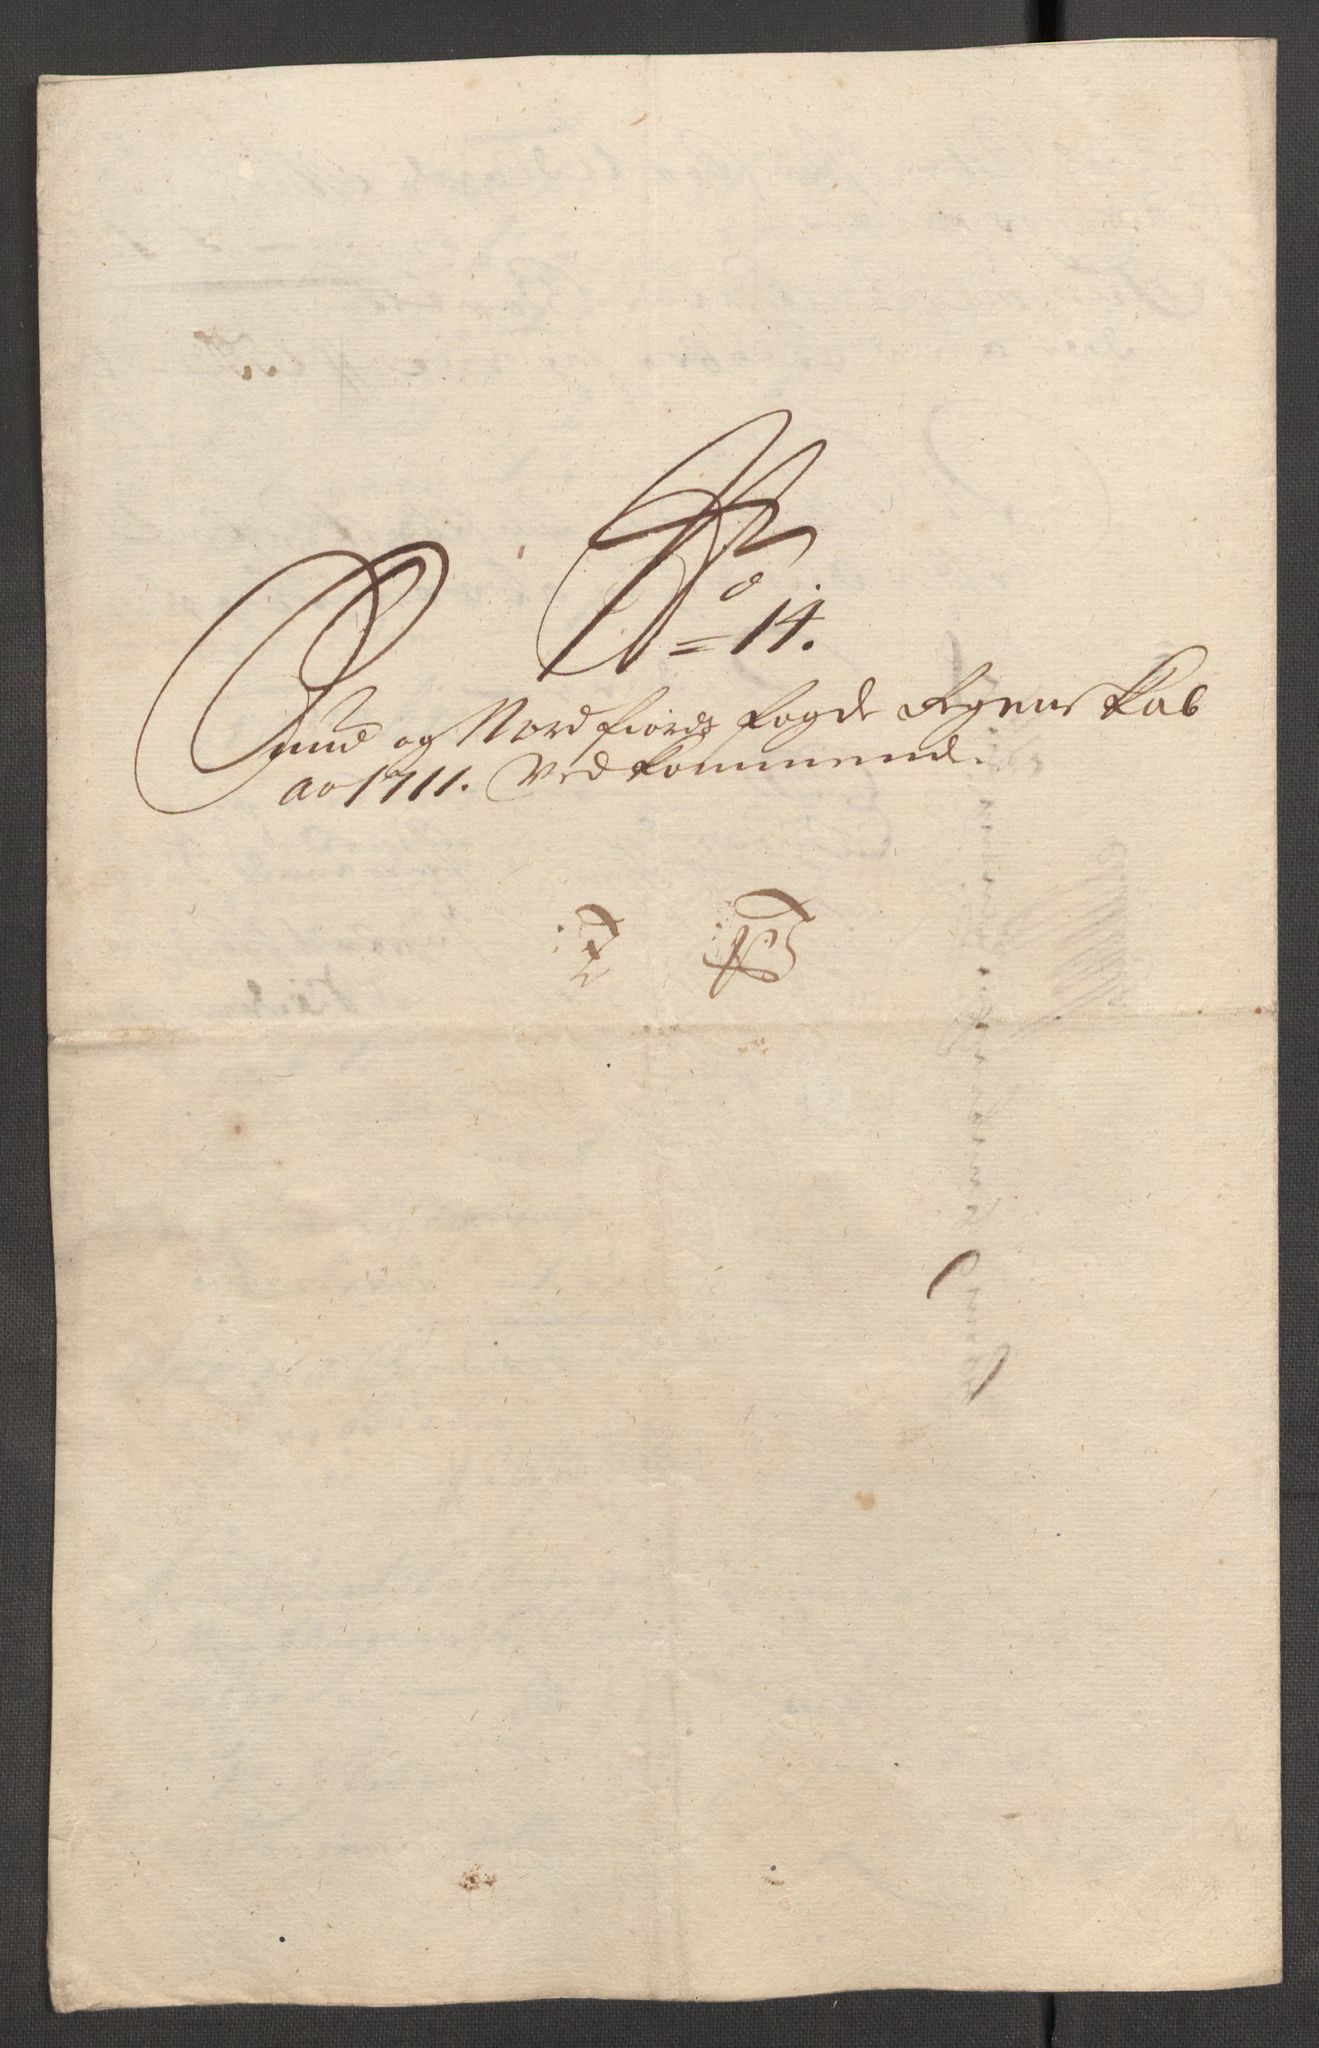 No
= 14.
Sund og Nordfiords fogde Regenskab
ao 1711. Vedkommend.